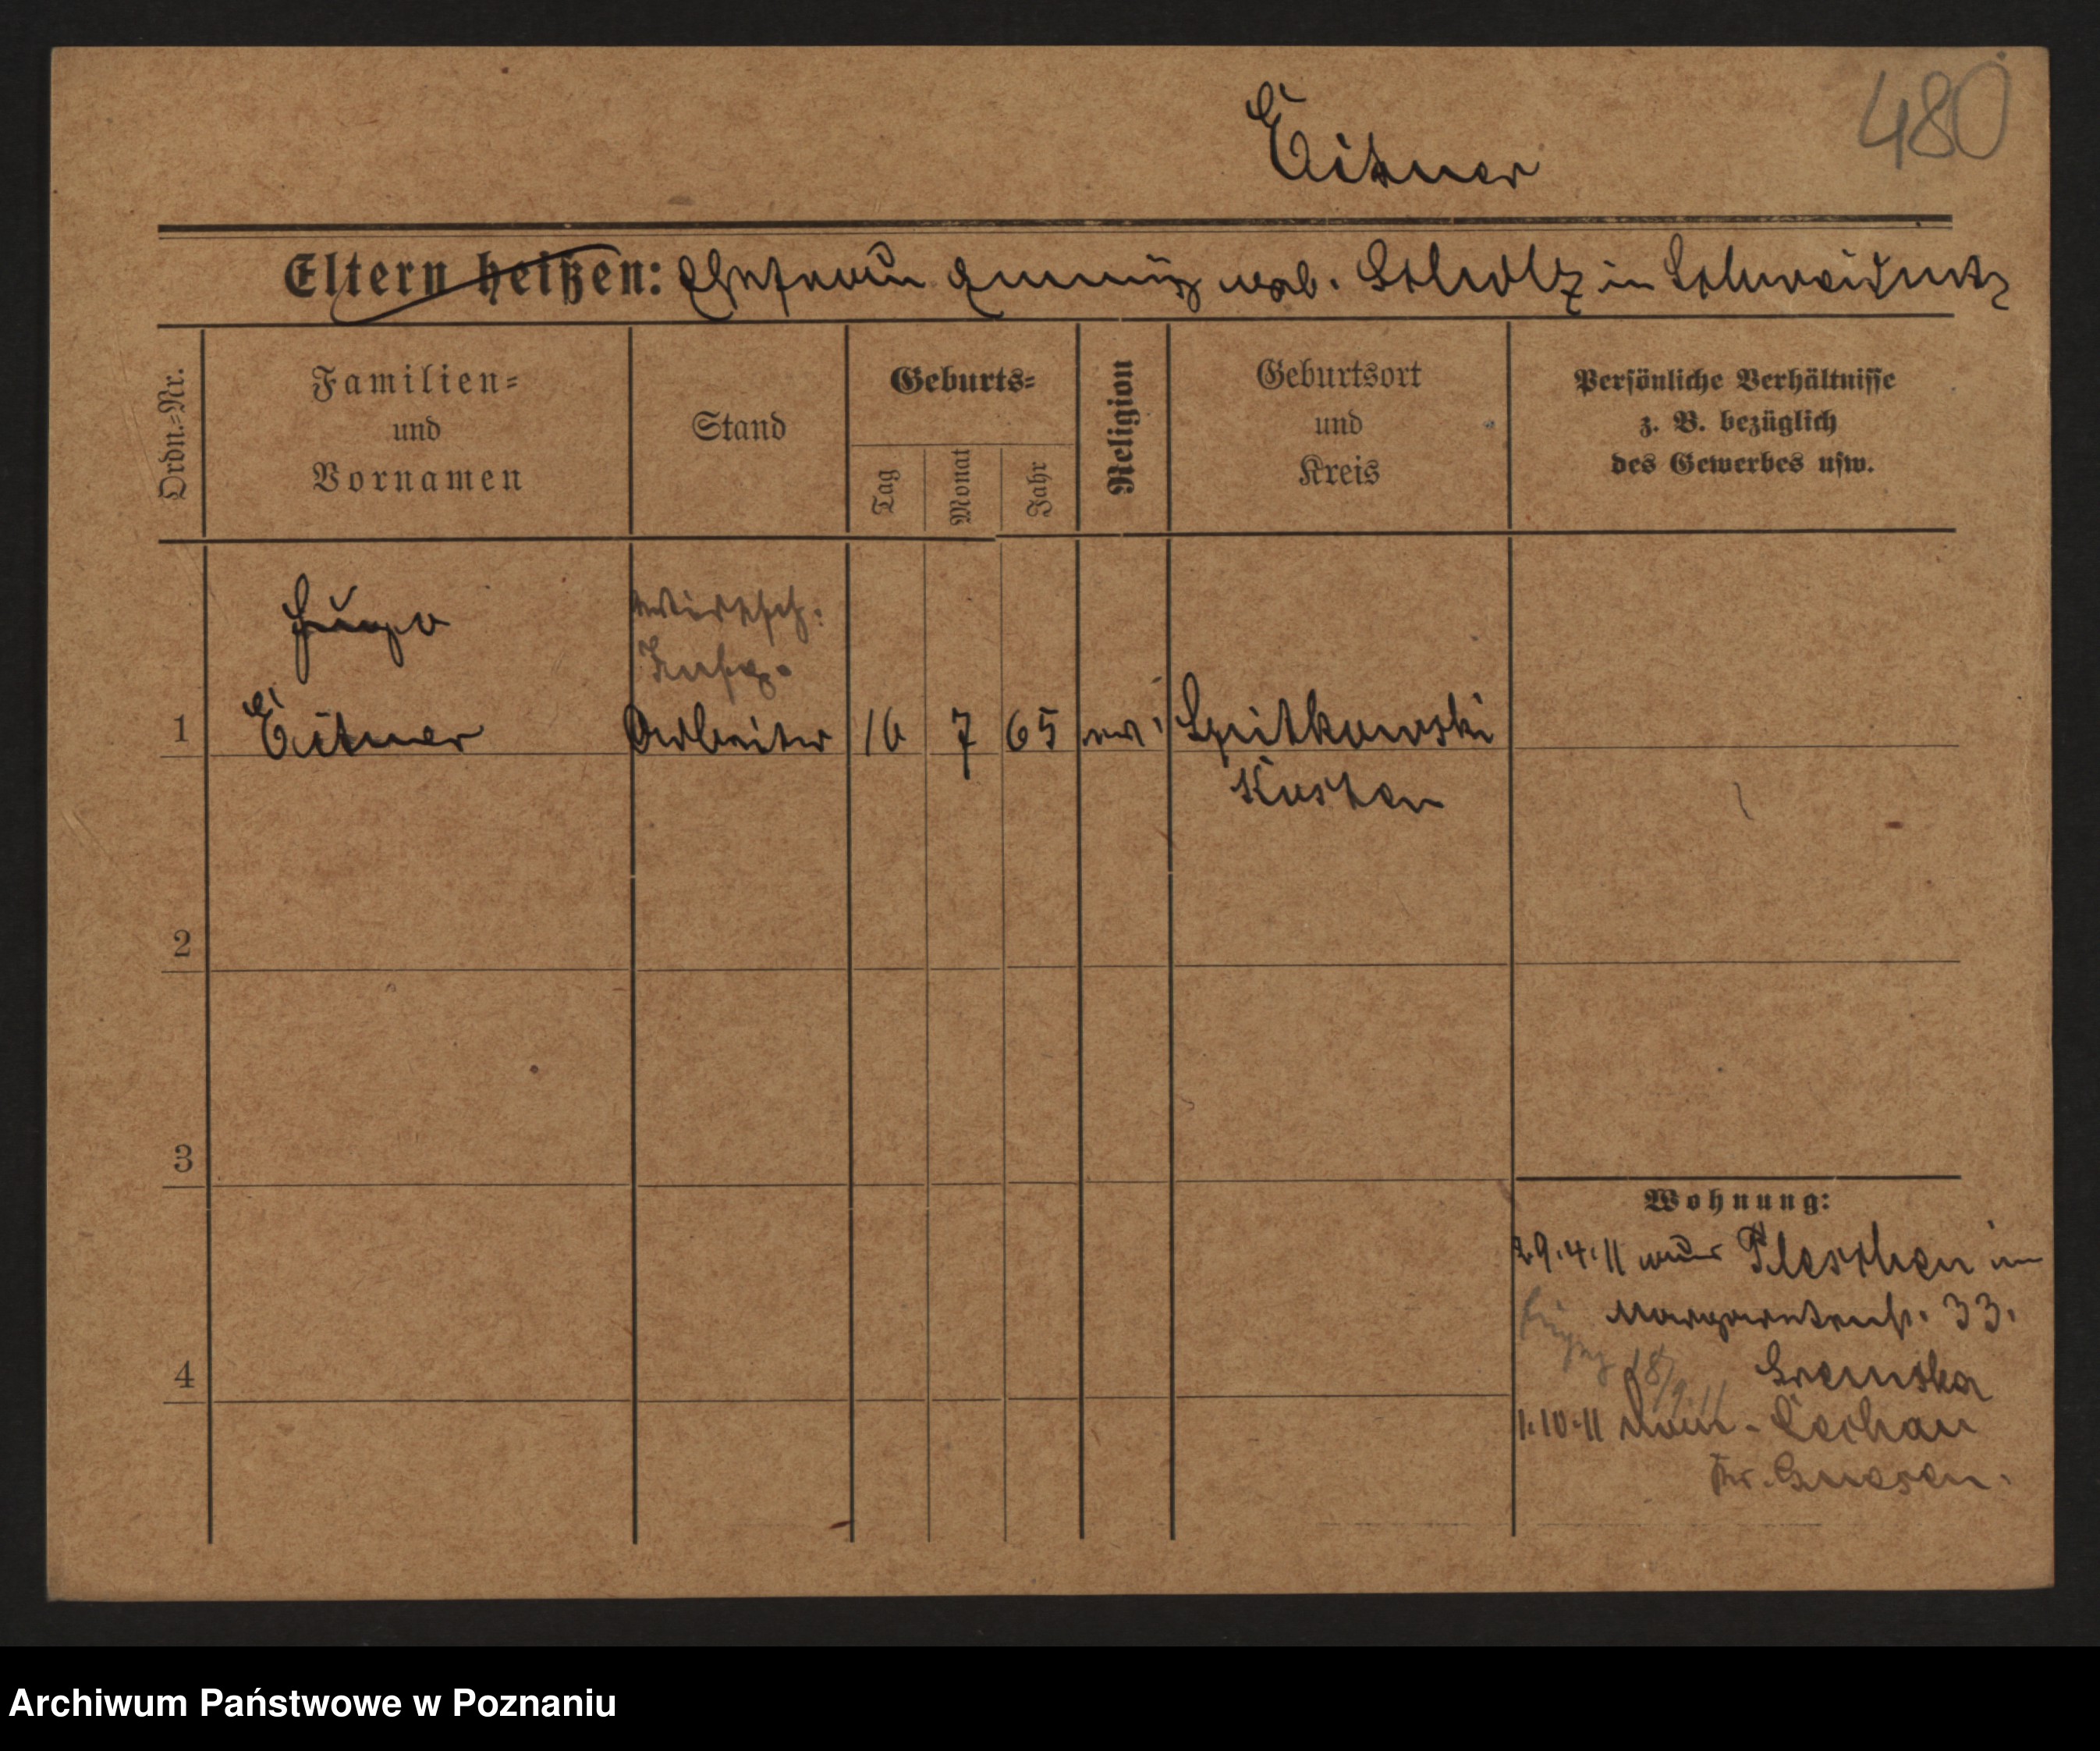 480
Eitner
Eltern heißen: Ehefrau geb. Scholz in Schweidnitz
Ordn.=Nr.
Familien=
und
Vornamen
Stand
Geburts=
Tag
Monat
Jahr
Religion
Geburtsort
und
Kreis
Persönliche Verhältnisse
z. B. bezüglich
des Gewerbes usw.
Hugo
Wirtsch.
Insp.
1 Eitner Arbeiter 16 7 65 ev. Spitkowski
Kosten
2
3
4
Wohnung:
29.4.11 Pleschen
Margaretenstr. 33.
18/9.11
1.10.11 Dom. Lechau
Kr. Gnesen.
Archiwum Państwowe w Poznaniu